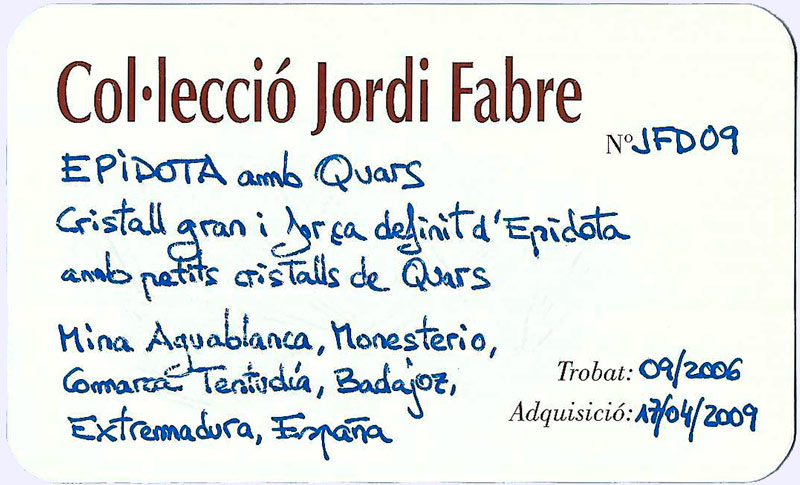 Col·lecció Jordi Fabre
Nº JFD09
EPIDOTA amb Quars
Cristall gran i força definit d'Epidota
amb petits cristalls de Quars
Mina Aguablanca, Monesterio,
Comarca Tentudía, Badajoz,
Extremadura, España
Trobat: 09/2006
Adquisició: 17/04/2009